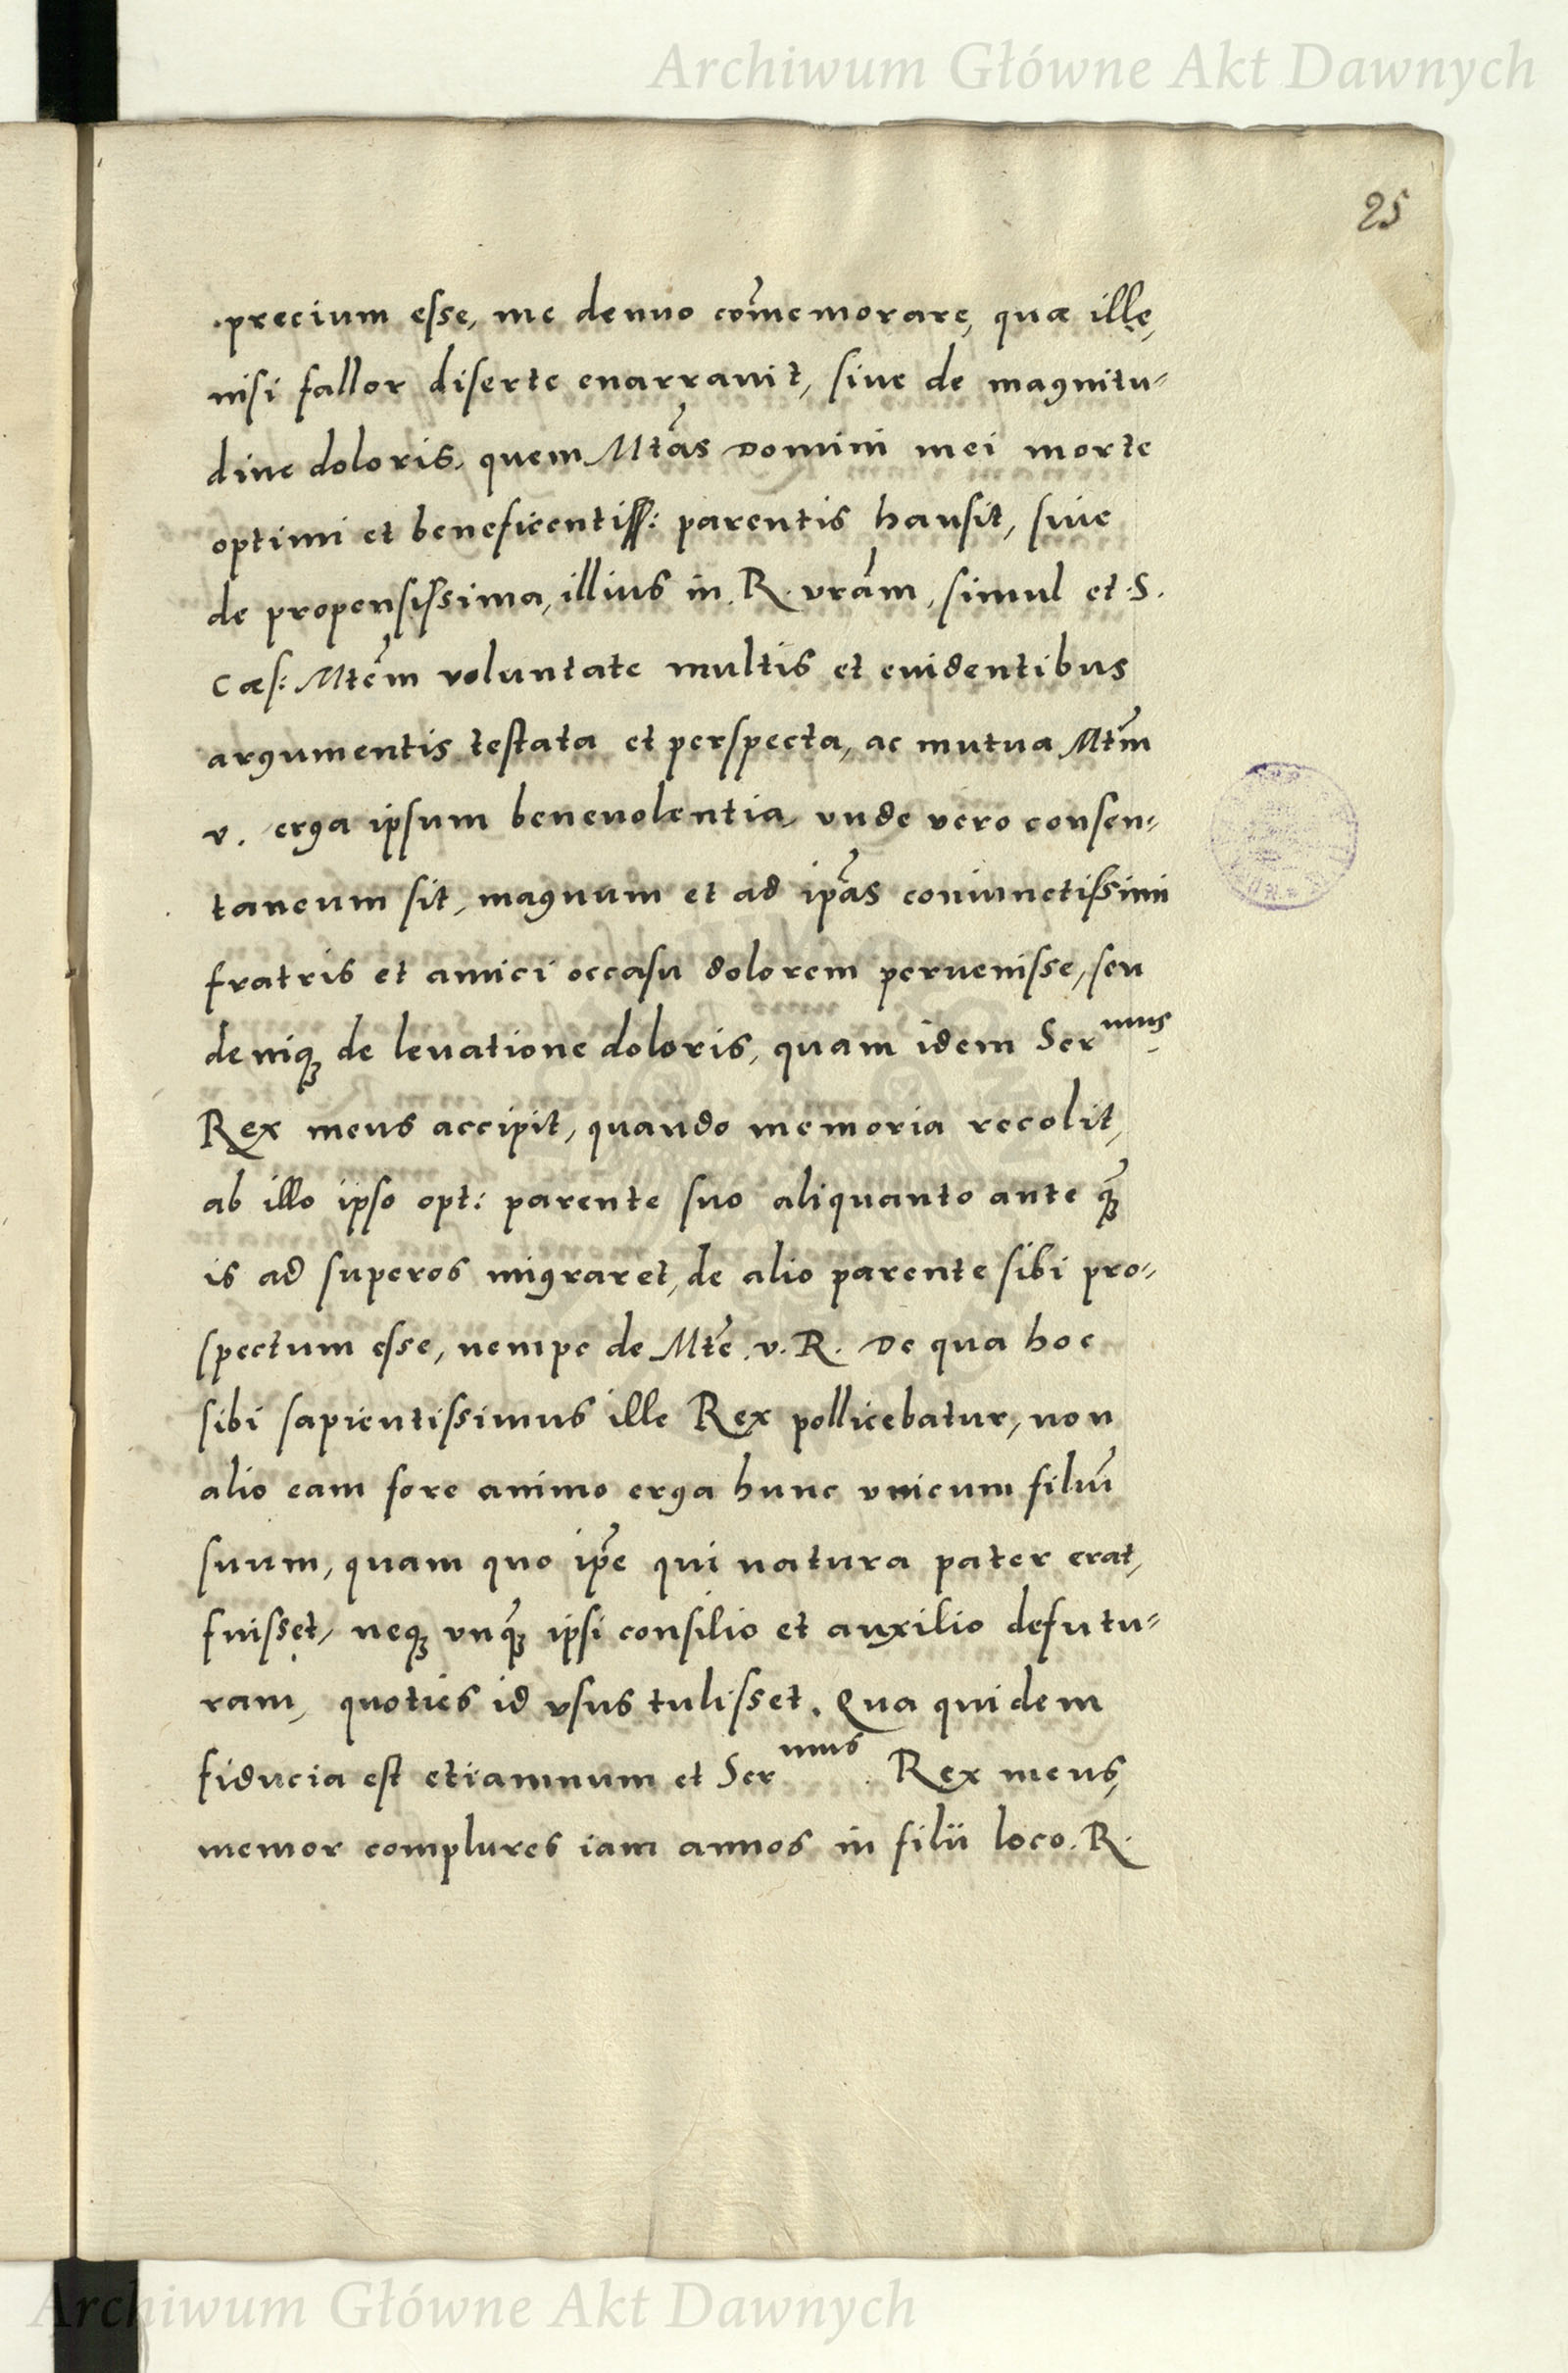 Archiwum Główne Akt Dawnych
25
precium esse, me denuo com̃emorare, quæ ille,
nisi fallor diserte enarravit, sive de magnitu-
dine doloris, quem Mtãs Domini mei morte
optimi et beneficentiss: parentis hausit, sive
de propensissima, illius in R. vrãm, simul et S.
Cæs: Mtẽm voluntate multis et evidentibus
argumentis testata et perspecta, ac mutua Mtm̃
v. erga ipsum benevolentia, unde vero consen-
taneum sit, magnum et ad ipãs coniunctissimi
fratris et amici occasu dolorem pervenisse, seu
deniq; de levatione doloris, quam idem Ser mus
Rex meus accipit, quando memoria recolit,
ab illo ipso opt: parente suo aliquanto ante q̃;
is ad superos migraret, de alio parente sibi pro-
spectum esse, nempe de Mtẽ. v. R. De qua hoc
sibi sapientissimus ille Rex pollicebatur, non
alio eam fore animo erga hunc unicum filiũ
suum, quam quo ip̃e qui natura pater erat,
fuisset, neq; unq̃; ipsi consilio et auxilio defutu-
ram, quoties id usus tulisset. Qua quidem
fiducia est etiamnum et Ser mus Rex meus,
memor complures iam annos in filii loco. R.
Archiwum Główne Akt Dawnych